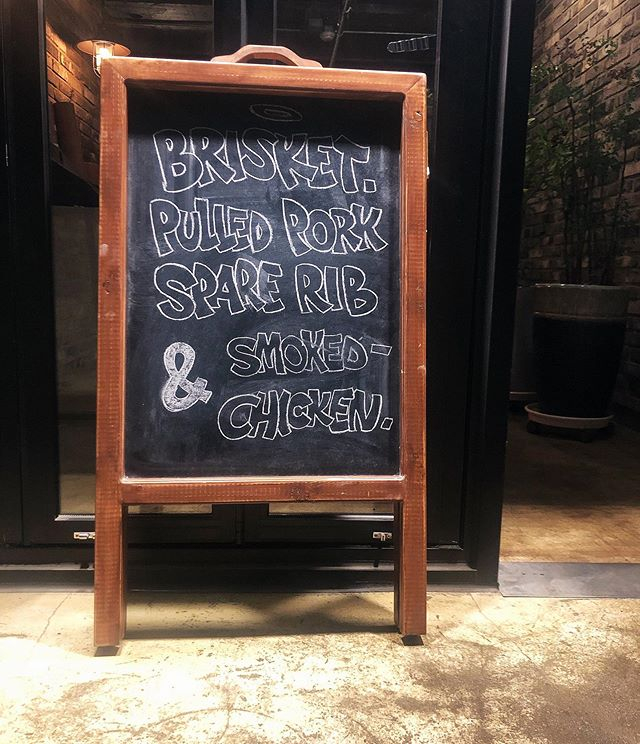 BRISKET.
PULLED PORK
SPARE RIB
& SMOKED-
CHICKEN.